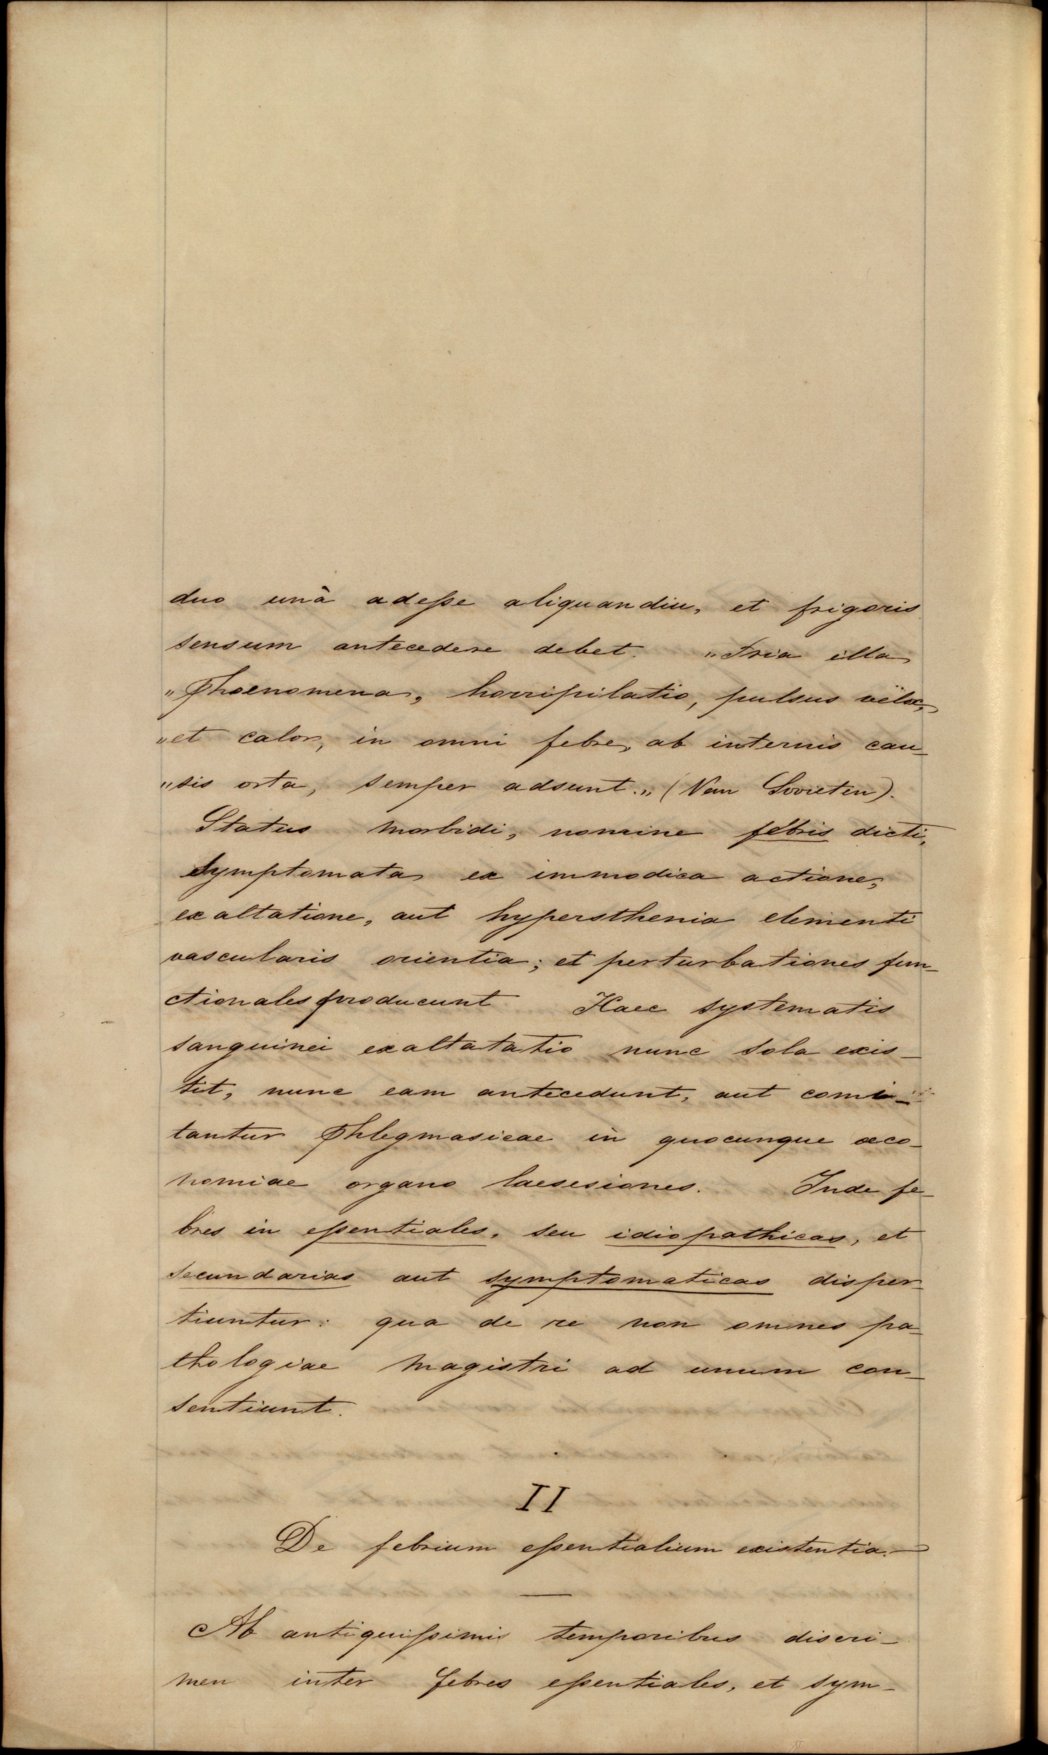 duo unâ adesse aliquandiu, et frigoris
sensum antecedere debet. „Tria illa
„Phoenomena, horripilatio, pulsus vëlox,
„et calor, in omni febre, ab internis cau-
„sis orta, semper adsunt.„ (Van Sovieten).
Status morbidi, nomine febris dicti,
Symptomata ex immodica actione,
exaltatione, aut hypersthenia elementi
vascularis orientia; et perturbationes fun-
ctionales producunt Haec systematis
sanguinei exaltatatio nunc sola exis-
tit, nunc eam antecedunt, aut comi-
tantur Phlegmasicae in quocunque œco-
nomiae organo laesesiones. Inde fe-
bres in essentiales, seu idiopathicas, et
secundarias aut symptomaticas disper-
tiuntur: qua de re non omnes pa-
thologiae magistri ad unum con-
sentiunt.
II
De febrium essentialium existentia.—
Ab antiquissimis temporibus discri-
men inter febres essentiales, et sym-